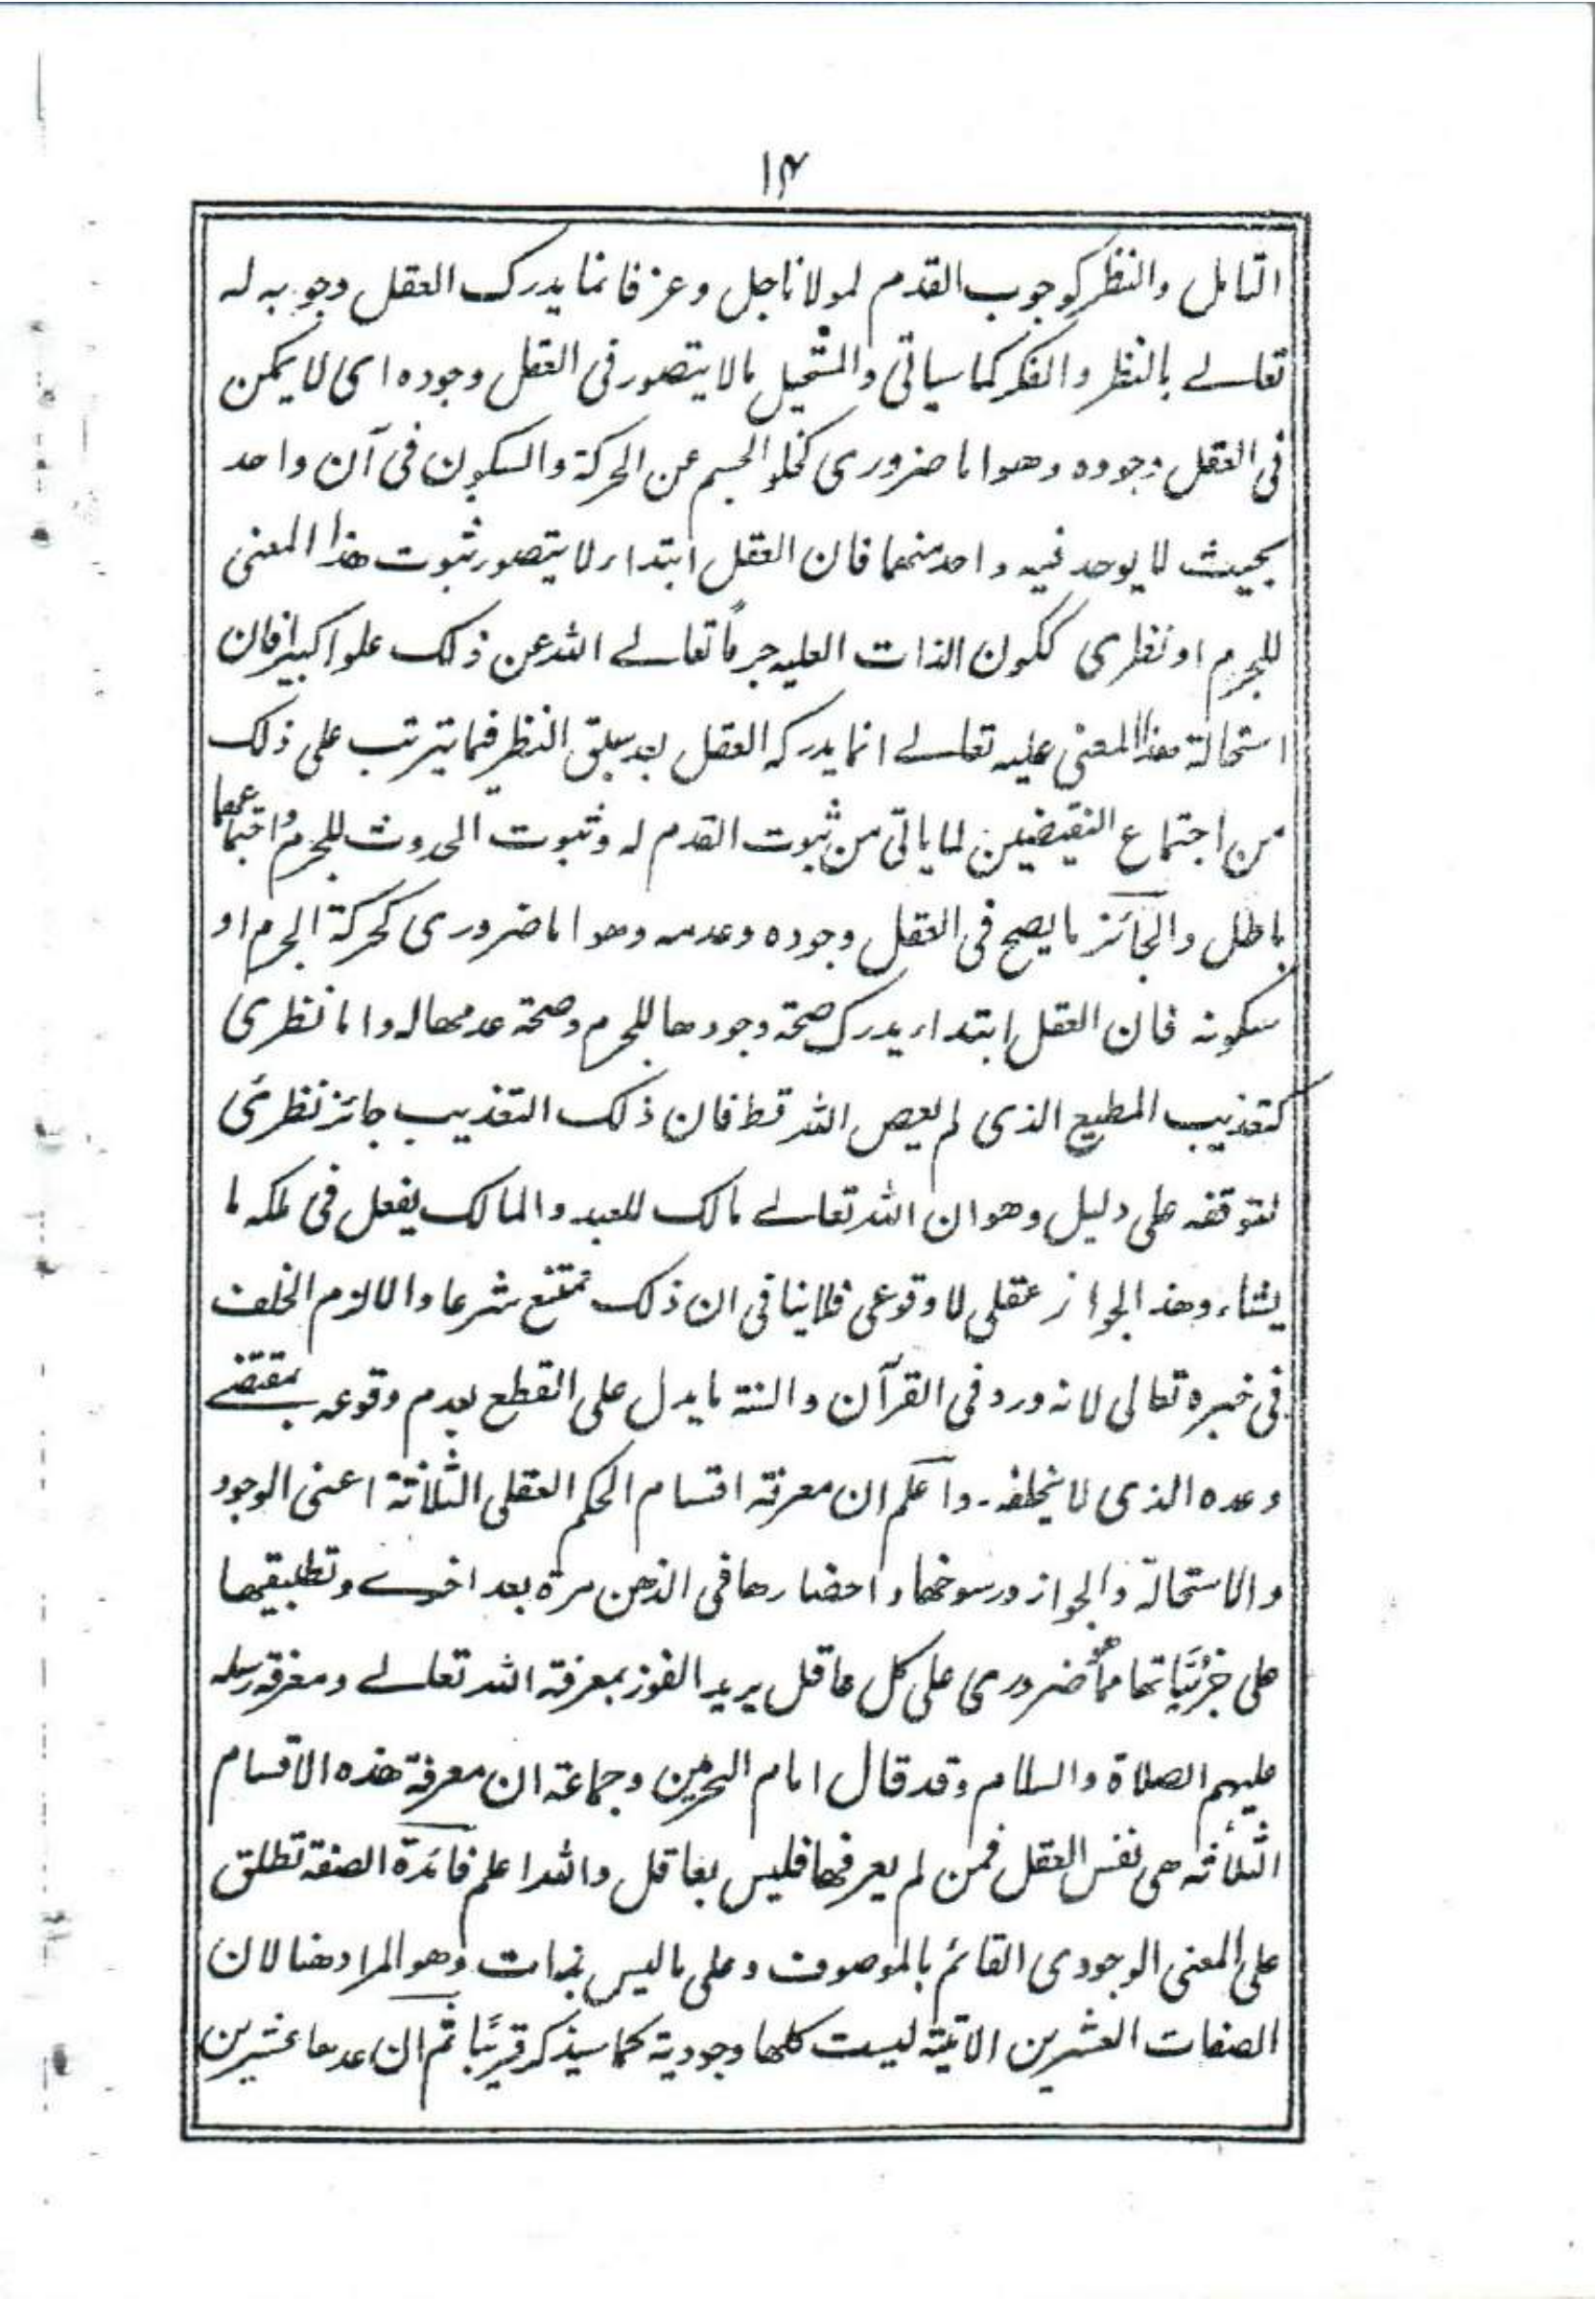 ١٤
التامل والنظر كوجوب القدم لمولانا جل وعز فانما يدرك العقل وجوبه له
تعالے بالنظر والفكر كما سياتى والمستحيل مالا يتصور فى العقل وجوده اى لا يمكن
فى العقل وجوده وهو اما ضرورى كخلو الجسم عن الحركة والسكون فى آن واحد
بحيث لا يوجد فيه واحد منهما فان العقل ابتداء لا يتصور ثبوت هذا المعنى
للجرم او نظرى ككون الذات العليه جرمًا تعالے الله عن ذلك علوا كبيرا فان
استحالة هذا المعنى عليه تعالے انما يدركه العقل بعد سبق النظر فيما يترتب على ذلك
من اجتماع النقيضين لما ياتى من ثبوت القدم له وثبوت الحدوث للجرم واجتماعهما
باطل والجائز ما يصح فى العقل وجوده وعدمه وهو اما ضرورى كحركة الجرم او
سكونه فان العقل ابتداء يدرك صحة وجودها للجرم وصحة عدمها له واما نظرى
كتعذيب المطيع الذى لم يعص الله قط فان ذلك التعذيب جائز نظرى
لتوقفه على دليل وهو ان الله تعالے مالك للعبد والمالك يفعل فى ملكه ما
يشاء وهذ الجواز عقلى لا وقوعى فلا ينافى ان ذلك ممتنع شرعا والا لزم الخلف
فى خبره تعالى لانه ورد فى القرآن والسنة ما يدل على القطع بعدم وقوعه بمقتضے
وعده الذى لا يخلفه۔ واعلم ان معرفة اقسام الحكم العقلى الثلاثة اعنى الوجوب
والاستحالة والجواز ورسوخها واحضارها فى الذهن مرة بعد اخرے وتطبيقها
على جزئياتها مما هو ضرورى على كل عاقل يريد الفوز بمعرفة الله تعالے ومعرفة رسله
عليهم الصلاة والسلام وقد قال امام الحرمين وجماعة ان معرفة هذه الاقسام
الثلاثه هى نفس العقل فمن لم يعرفها فليس بعاقل والله اعلم فائدة الصفة تطلق
على المعنى الوجودى القائم بالموصوف وعلى ماليس بذات وهو المراد هنا لان
الصفات العشرين الاتية ليست كلها وجودية كما سيذكر قريبًا ثم ان عدها عشرين